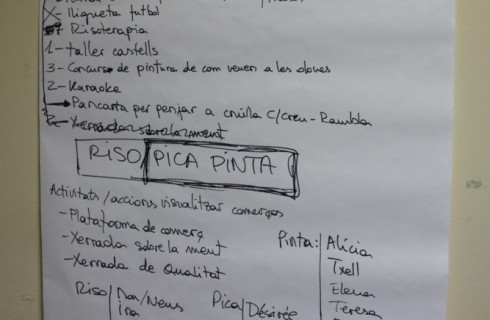 Lligueta futbol
Risoterapia
1- taller castells
3- Concurso de pintura de com veuen a les dones
2- Karaoke
Pancarta per penjar a cruïlla C/Creu-Rambla
2- Xerrada sobre la ment
RISO/PICA PINTA
Activitats/accions visualitzar comerços
- Plataforma de comerç
- Xerrada sobre la ment
- Xerrada de Qualitat
Pinta: Alícia
Txell
Elena
Teresa
Riso Mar/Neus
Ira
Pica Désirée